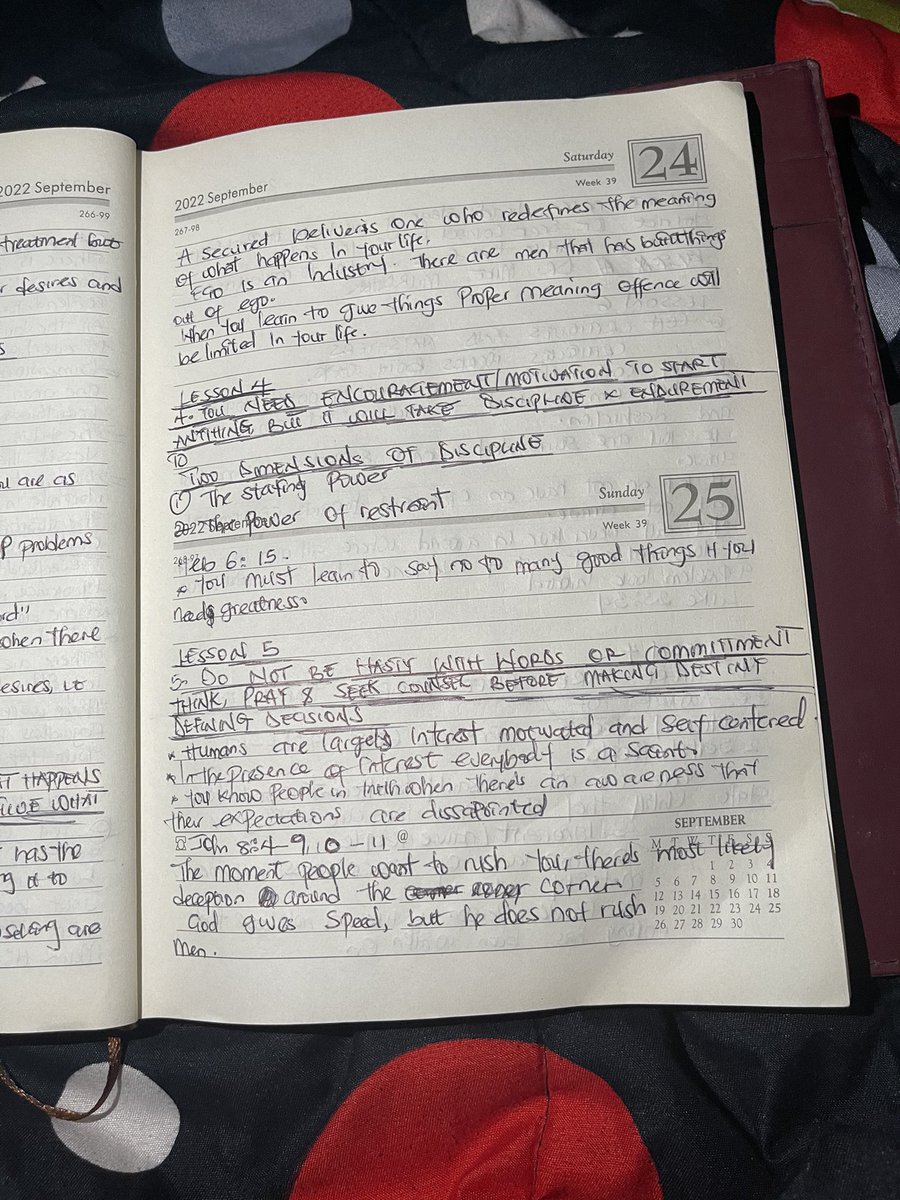 2022 September
266-99
treatment but
r desires and
s
u are as
P problems
rd"
when there
esires, it
T HAPPENS
WHAT
t has the
g it to
are
2022 September
Saturday
24
Week 39
267-98
A secured believer is one who redefines the meaning
of what happens in your life.
EGO is an Industry. There are men that has built things
out of ego.
When you learn to give things Proper meaning offence will
be limited in your life.
LESSON 4
4. YOU NEED ENCOURAGEMENT/MOTIVATION TO START
ANYTHING BUT IT WILL TAKE DISCIPLINE & ENDUREMENT
TO
TWO DIMENSIONS OF DISCIPLINE
(i) The staying Power
The Power of restraint
2022 September
Sunday
25
Week 39
Heb 6: 15.
* You must learn to say no to many good things if you
need greatness.
LESSON 5
5- DO NOT BE HASTY WITH WORDS OR COMMITTMENT
THINK, PRAY & SEEK COUNSEL BEFORE MAKING DESTINY
DEFINING DECISIONS
* Humans are largely interest motivated and self centered.
* In the presence of interest everybody is a saint.
* You know People in truth when there's an awareness that
their expectations are dissapointed
John 8:4-9, 10-11 @
The moment People want to rush You, there's most likely
deception around the corner corner corner
God gives Speed, but he does not rush
men.
SEPTEMBER
M T W T F S S
1 2 3 4
5 6 7 8 9 10 11
12 13 14 15 16 17 18
19 20 21 22 23 24 25
26 27 28 29 30